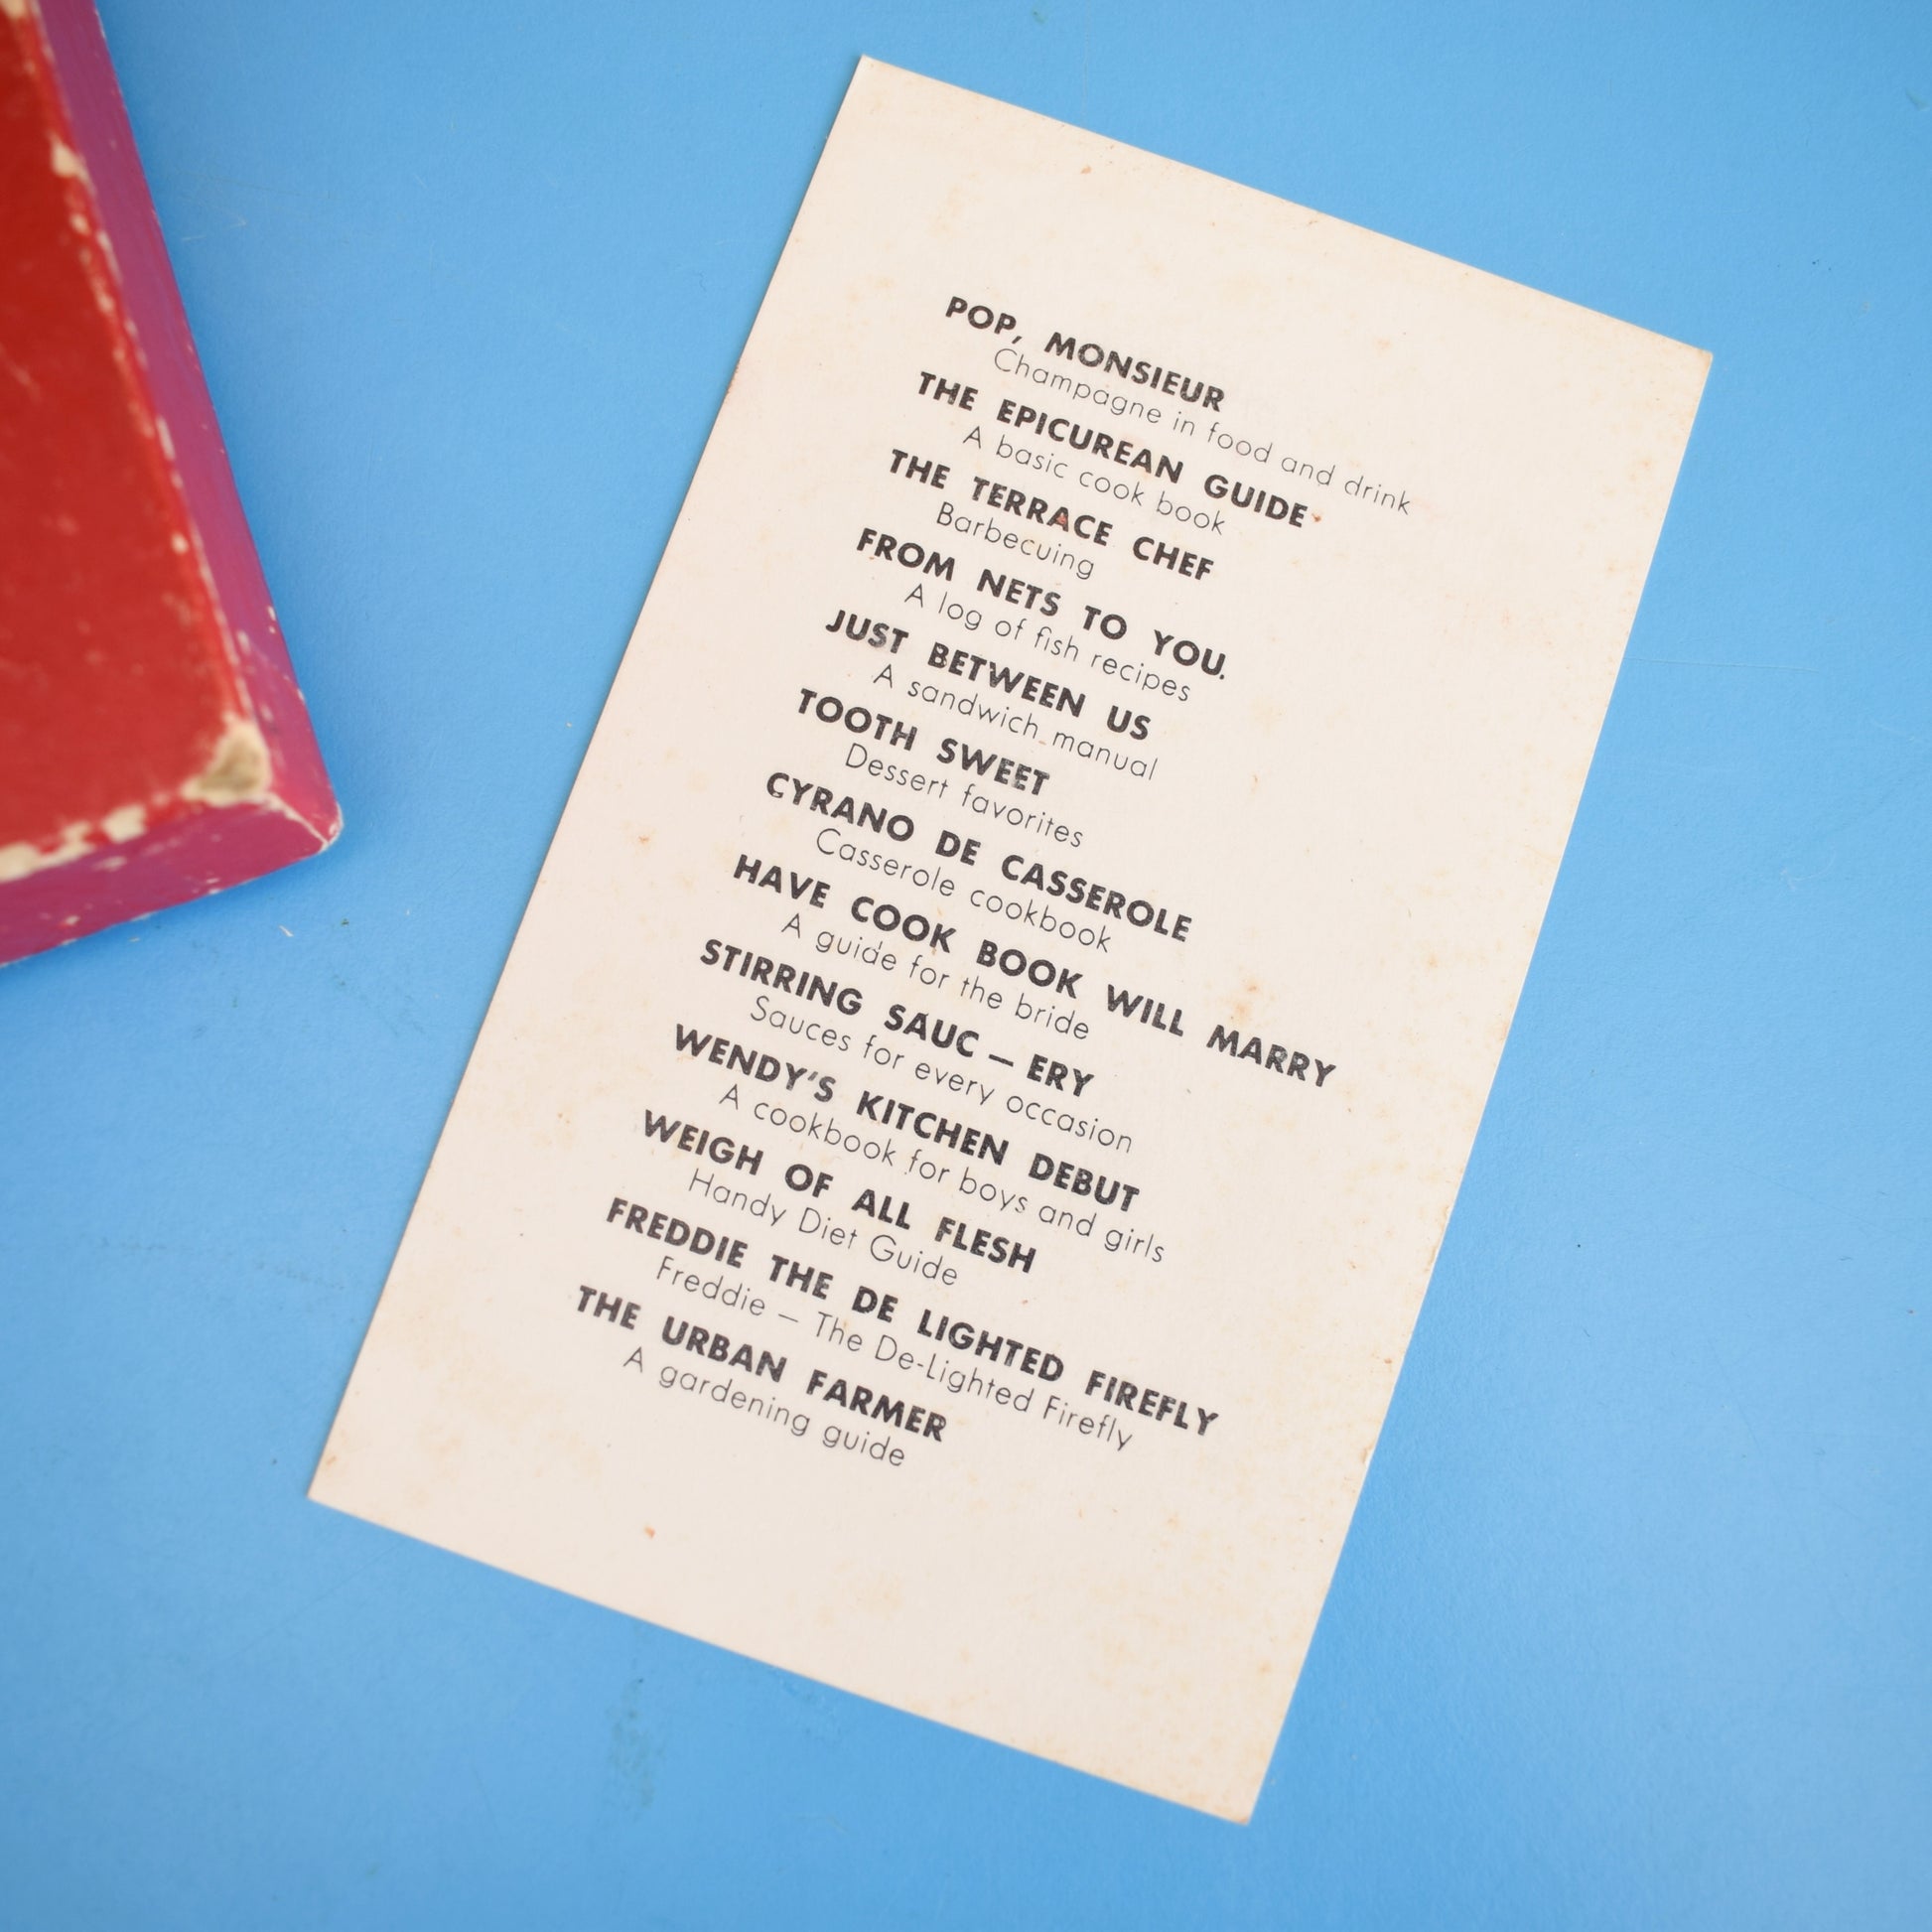 POP, MONSIEUR
Champagne in food and drink
THE EPICUREAN GUIDE
A basic cook book
THE TERRACE CHEF
Barbecuing
FROM NETS TO YOU.
A log of fish recipes
JUST BETWEEN US
A sandwich manual
TOOTH SWEET
Dessert favorites
CYRANO DE CASSEROLE
Casserole cookbook
HAVE COOK BOOK WILL MARRY
A guide for the bride
STIRRING SAUC – ERY
Sauces for every occasion
WENDY'S KITCHEN DEBUT
A cookbook for boys and girls
WEIGH OF ALL FLESH
Handy Diet Guide
FREDDIE THE DE LIGHTED FIREFLY
Freddie – The De-Lighted Firefly
THE URBAN FARMER
A gardening guide